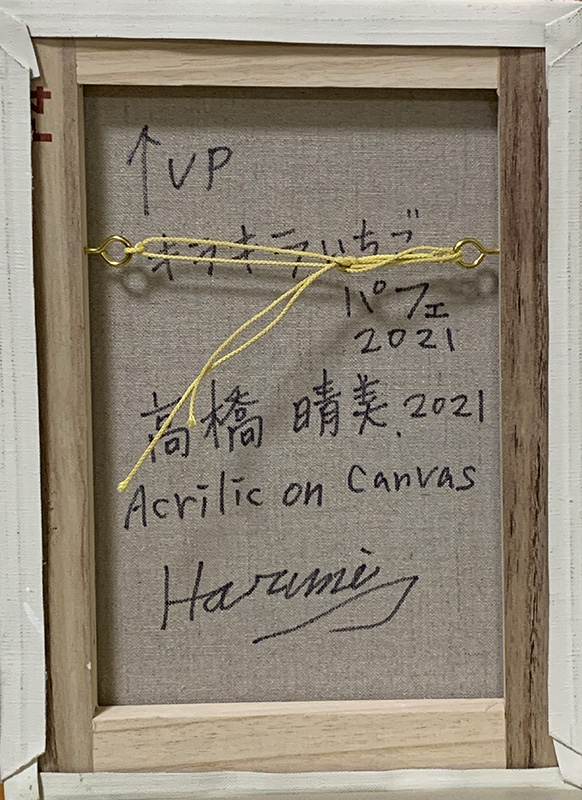 ↑UP
キラキラいちご
パフェ
2021
高橋 晴美.2021
Acrilic on Canvas
Harumi